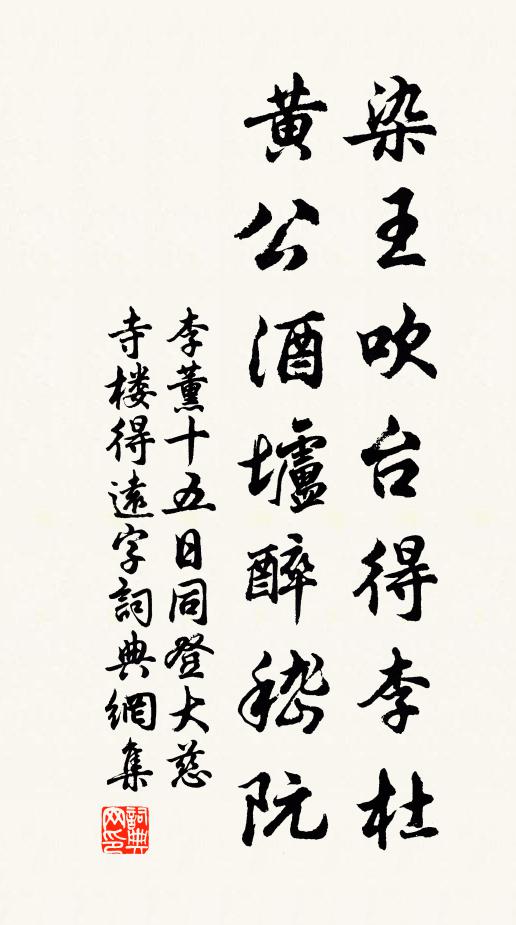 染王吹台得李杜
黄公酒壚醉嵇阮
李薰十五日同登大慈
寺楼得遠字詞典網集
詞典网印